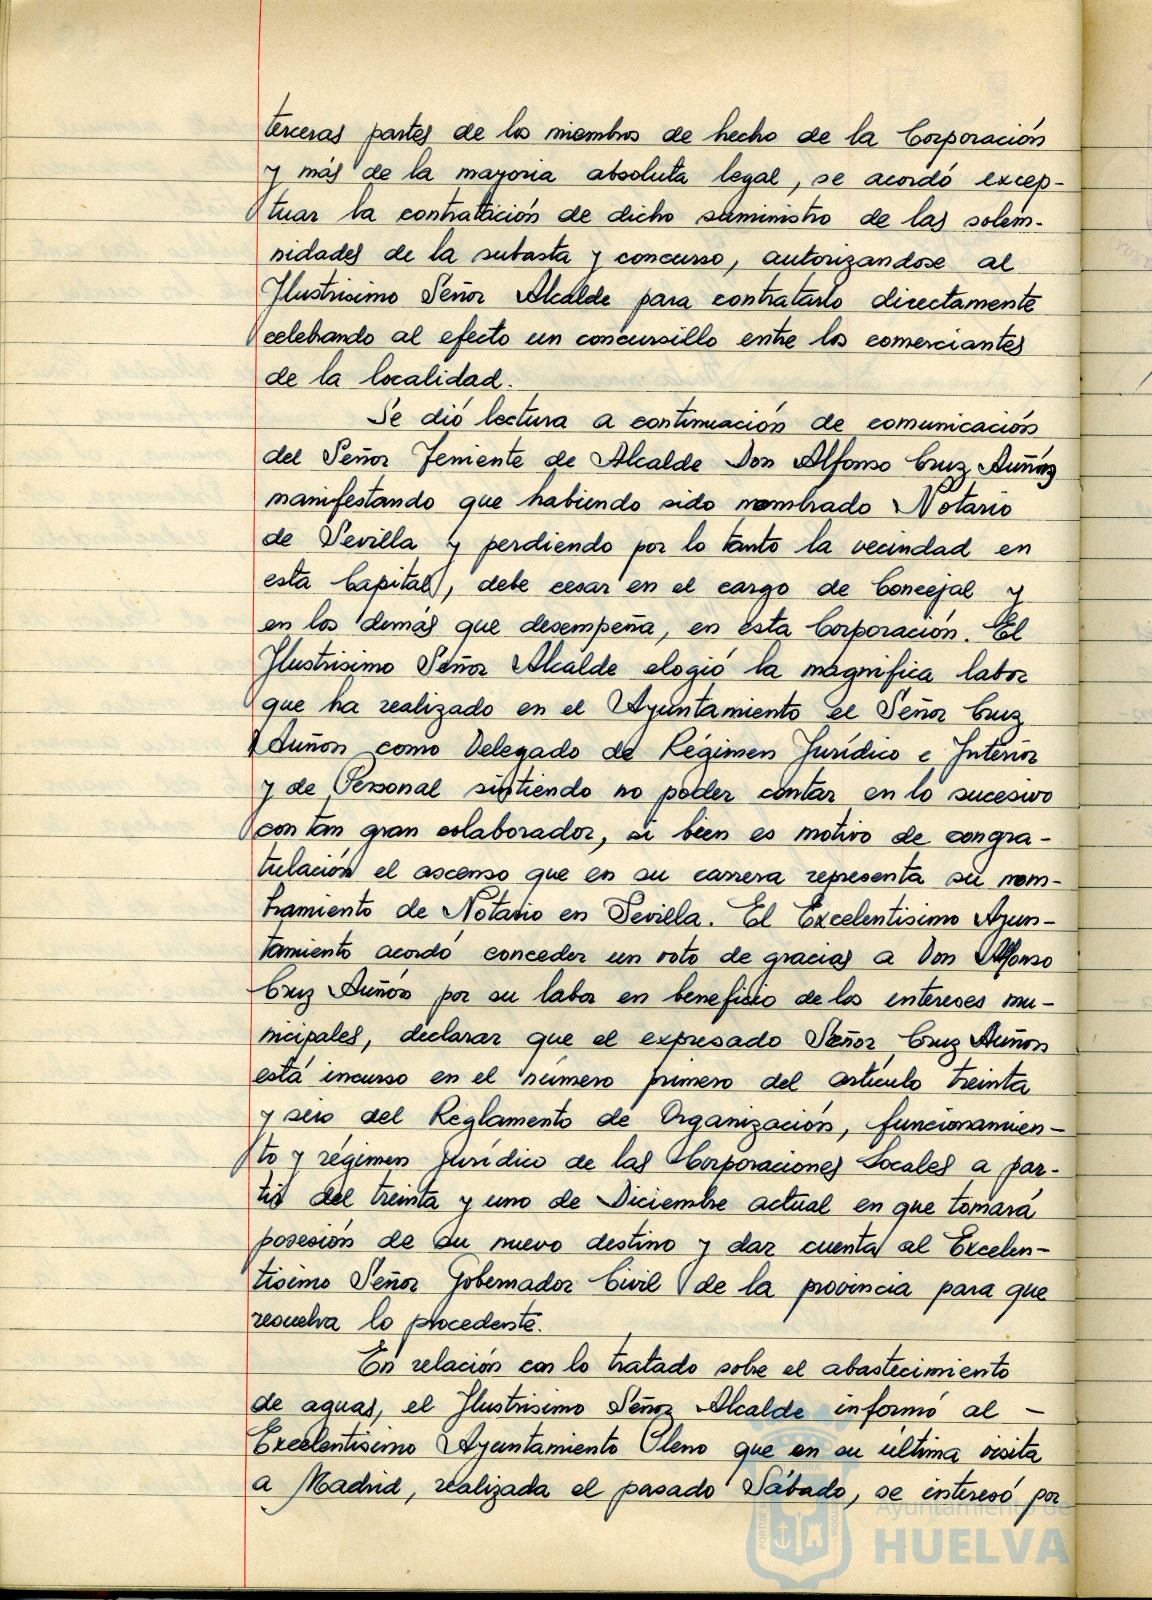 terceras partes de los miembros de hecho de la Corporación
y más de la mayoria absoluta legal, se acordó excep-
tuar la contratación de dicho suministro de las solem-
nidades de la subasta y concurso, autorizandose al
Ilustrisimo Señor Alcalde para contratarlo directamente
celebrando al efecto un concursillo entre los comerciantes
de la localidad.
Se dió lectura a continuación de comunicación
del Señor Teniente de Alcalde Don Alfonso Cruz Auñón
manifestando que habiendo sido nombrado Notario
de Sevilla y perdiendo por lo tanto la vecindad en
esta Capital, debe cesar en el cargo de Concejal y
en los demás que desempeña, en esta Corporación. El
Ilustrisimo Señor Alcalde elogió la magnifica labor
que ha realizado en el Ayuntamiento el Señor Cruz
Auñón como Delegado de Régimen Jurídico e Interior
y de Personal sintiendo no poder contar en lo sucesivo
con tan gran colaborador, si bien es motivo de congra-
tulación el ascenso que en su carrera representa su nom-
bramiento de Notario en Sevilla. El Excelentisimo Ayun-
tamiento acordó conceder un voto de gracias a Don Alfonso
Cruz Auñón por su labor en beneficio de los intereses mu-
nicipales, declarar que el expresado Señor Cruz Auñón
está incurso en el número primero del artículo treinta
y seis del Reglamento de Organización, funcionamien-
to y régimen jurídico de las Corporaciones Locales a par-
tir del treinta y uno de Diciembre actual en que tomará
posesión de su nuevo destino y dar cuenta al Excelen-
tisimo Señor Gobernador Civil de la provincia para que
resuelva lo procedente.
En relación con lo tratado sobre el abastecimiento
de aguas, el Ilustrisimo Señor Alcalde informó al -
Excelentisimo Ayuntamiento Pleno que en su última visita
a Madrid, realizada el pasado Sábado, se interesó por
Ayuntamiento de
HUELVA